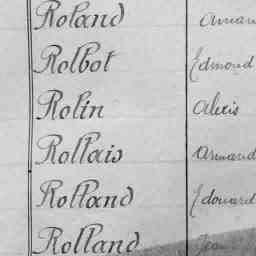 Roland Arman
Rolbot Edmond
Rolin Alexis
Rollais Armand
Rolland Edouard
Rolland Jean